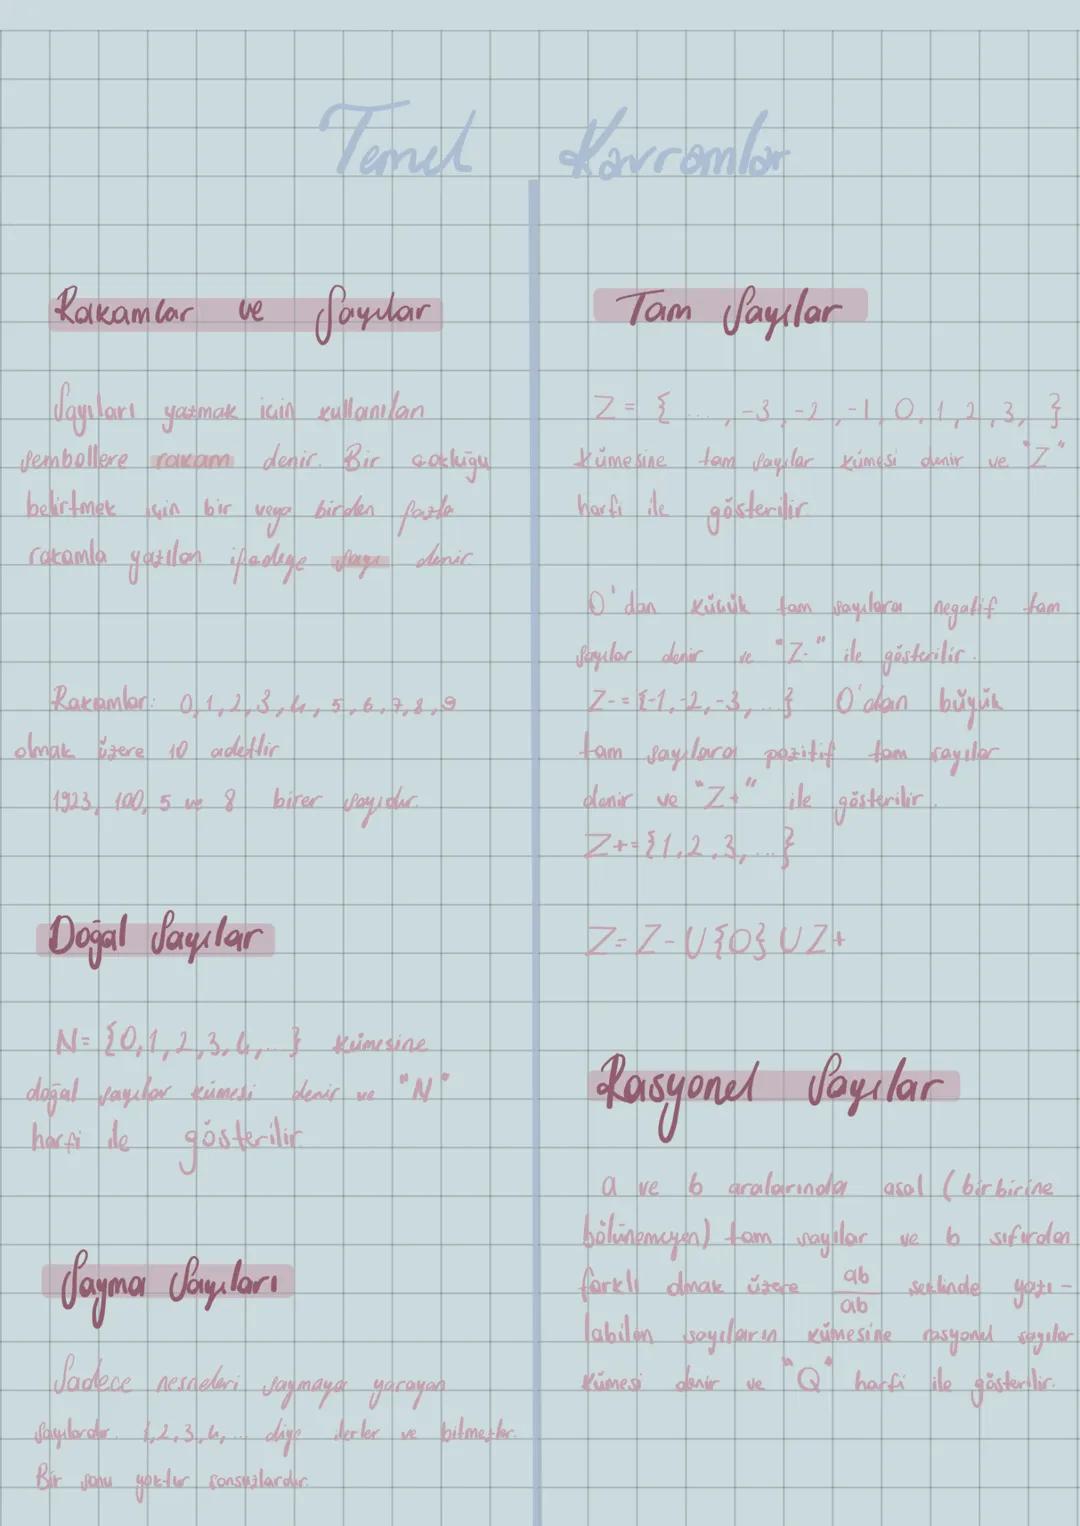 Temel Kavramlar
Rakamlar ve Sayılar
Sayıları yazmak için kullanılan
sembollere rakam denir. Bir çokluğu
belirtmek için bir veya birden fazla
rakamla yazılan ifadeye sayı denir.
Rakamlar: 0,1,2,3,4,5,6,7,8,9
olmak üzere 10 adettir
1923, 100, 5 ve 8 birer sayıdır.
Doğal Sayılar
N= {0,1,2,3,4,...} kümesine
doğal sayılar kümesi denir ve "N"
harfi ile gösterilir.
Sayma Sayıları
Sadece nesneleri saymaya yarayan
sayılardır. 1,2,3,4,... diye ilerler ve bitmezler.
Bir sonu yoktur sonsuzlardır.
Tam Sayılar
Z = { ..., -3, -2, -1, 0, 1, 2, 3, }
kümesine tam sayılar kümesi denir ve "Z"
harfi ile gösterilir
0'dan küçük tam sayılara negatif tam
sayılar denir ve "Z-" ile gösterilir.
Z-={-1,-2,-3,...} 0'dan büyük
tam sayılara pozitif tam sayılar
denir ve "Z+" ile gösterilir.
Z+={1,2,3,...}
Z=Z-U{0}UZ+
Rasyonel Sayılar
a ve b aralarında asal (birbirine
bölünemeyen) tam sayılar ve b sıfırdan
farklı olmak üzere ab/ab şeklinde yazı-
labilen sayıların kümesine rasyonel sayılar
kümesi denir ve "Q" harfi ile gösterilir.